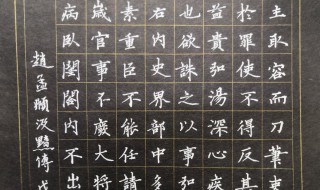 主取容而刀筆吏
於罪使不得反其
益貴弘湯深心疾
也欲誅之以事弘
右内史界部中多
素重臣不能任請
歲官事不廢大將
病臥閨閤内不出
趙孟頫汲黯傳